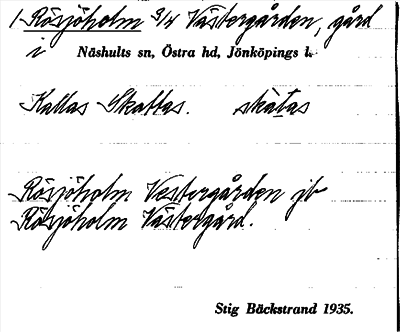 1 Rösjöholm 3/4 Västergården, gård
i Näshults sn, Östra hd, Jönköpings l.
Kallas Skattas. skàtas
Rösjöholm Västergården jb
Rösjöholm Västergård.
Stig Bäckstrand 1935.